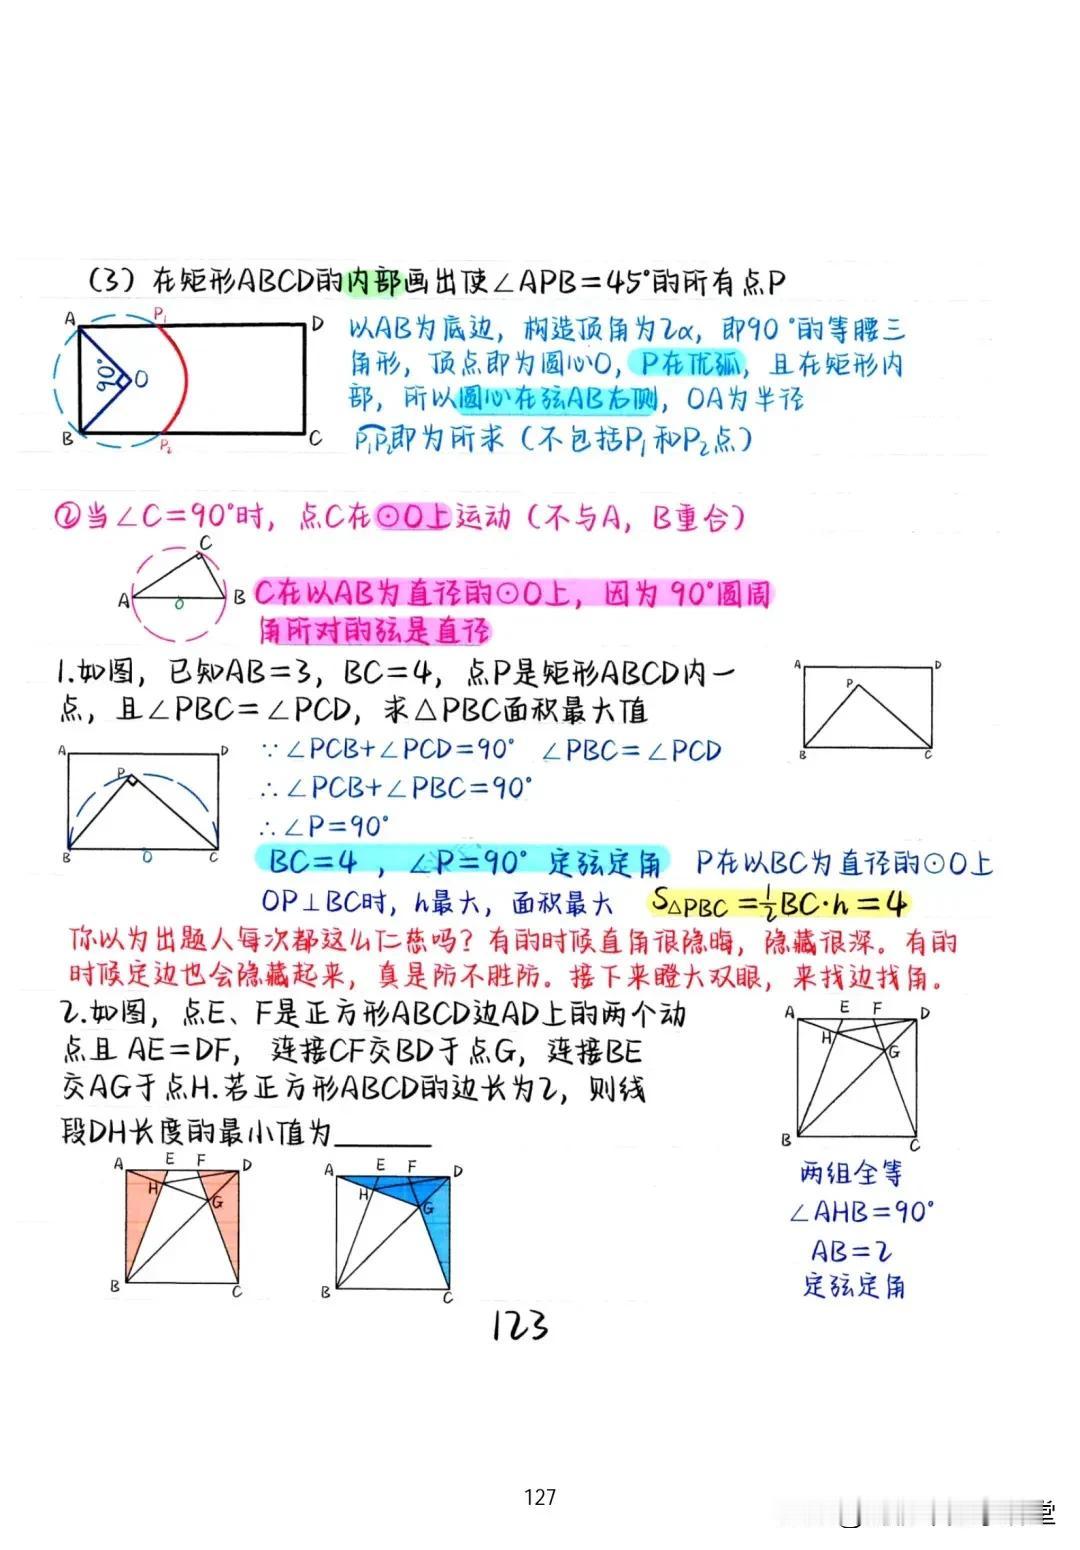 (3) 在矩形ABCD的内部画出使∠APB=45°的所有点P
A
P₁
D
90°
O
B
P₂
C
以AB为底边，构造顶角为2α，即90°的等腰三
角形，顶点即为圆心O，P在优弧，且在矩形内
部，所以圆心在弦AB右侧，OA为半径
P₁P₂即为所求（不包括P₁和P₂点）
②当∠C=90°时，点C在⊙O上运动（不与A，B重合）
C
A
O
B
C在以AB为直径的⊙O上，因为90°圆周
角所对的弦是直径
1.如图，已知AB=3，BC=4，点P是矩形ABCD内一
点，且∠PBC=∠PCD，求△PBC面积最大值
A
D
P
B
C
A
D
P
B
O
C
∵∠PCB+∠PCD=90° ∠PBC=∠PCD
∴∠PCB+∠PBC=90°
∴∠P=90°
BC=4，∠P=90° 定弦定角 P在以BC为直径的⊙O上
OP⊥BC时，h最大，面积最大 S△PBC=½BC·h=4
你以为出题人每次都这么仁慈吗？有的时候直角很隐晦，隐藏很深。有的
时候定边也会隐藏起来，真是防不胜防。接下来瞪大双眼，来找边找角。
2.如图，点E、F是正方形ABCD边AD上的两个动
点且 AE=DF， 连接CF交BD于点G，连接BE
交AG于点H.若正方形ABCD的边长为2，则线
段DH长度的最小值为______
A
E
F
D
H
G
B
C
A
E
F
D
H
G
B
C
A
E
F
D
H
G
B
C
两组全等
∠AHB=90°
AB=2
定弦定角
123
127
堂